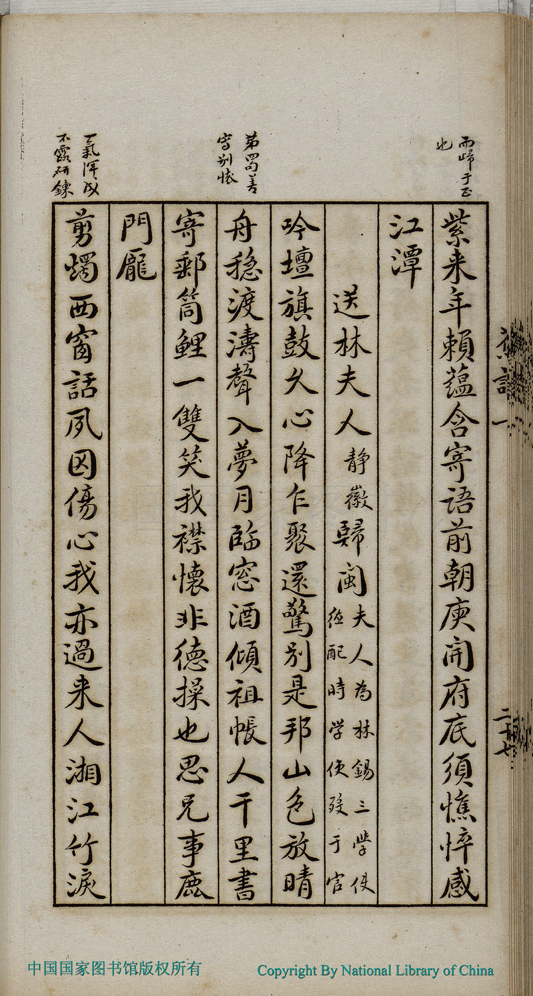 而歸于正
也
紫来年賴蘊含寄語前朝庾開府底須憔悴感
江潭
送林夫人静徽歸閩夫人為林錫三學使
配時学使殁于官
第四句善
寫别懷
吟壇旗鼓久心降乍聚還驚别是邦山色放晴
舟穏渡濤聲入夢月臨窓酒傾祖帳人千里書
寄郵筒鯉一雙笑我襟懷非德操也思兄事鹿
門龐
一氣渾成
不露研鍊
剪燭西窗話夙因傷心我亦過来人湘江竹淚
二十七
中国国家图书馆版权所有
Copyright By National Library of China